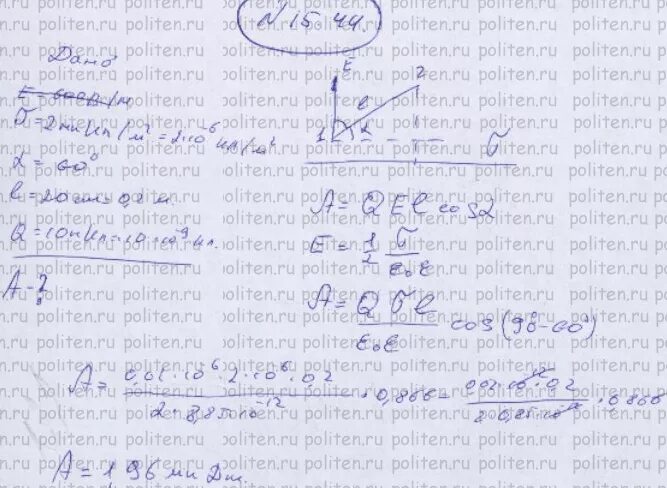 № 15.44.
Дано
E = 600 В/м
σ = 2 мкКл/м² = 2·10⁻⁶ Кл/м²
α = 60°
l = 20 см = 0,2 м
Q = 10 нКл = 10·10⁻⁹ Кл.
A - ?
E
2
l
1 α
σ
A = QEl cos α
E = 1/2 σ/ε₀ε
A = Qσl/ε₀ε cos(90° - 60°)
A = 0,01·10⁻⁶·2·10⁻⁶·0,2 / 2·8,85·10⁻¹² · 0,866 =
A = 196 мкДж.
politen.ru